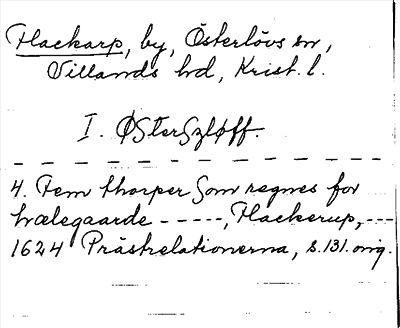 Flackarp, by, Österlövs sn,
Villands hd, Krist. l.
I. ØsterSzløff.
4. Fem thorper Som regnes for
hælegaarde - - - - -, Flackerup, - - -
1624 Prästrelationerna, s. 131. orig.